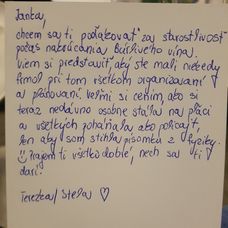 Janka,
chcem sa ti poďakovať za starostlivosť
počas nakrúcania Búrlivého vína.
Viem si predstaviť, aký ste mali niekedy
fímol pri tom všetkom organizovaní
a plánovaní. Veľmi si cením, ako si
teraz nedávno osobne stála na pľaci
a všetkých poháňala ako policajt,
len aby som stihla písomku z fyziky.
☺ Prajem ti všetko dobré, nech sa ti
darí.
Terezka/Stela ♡